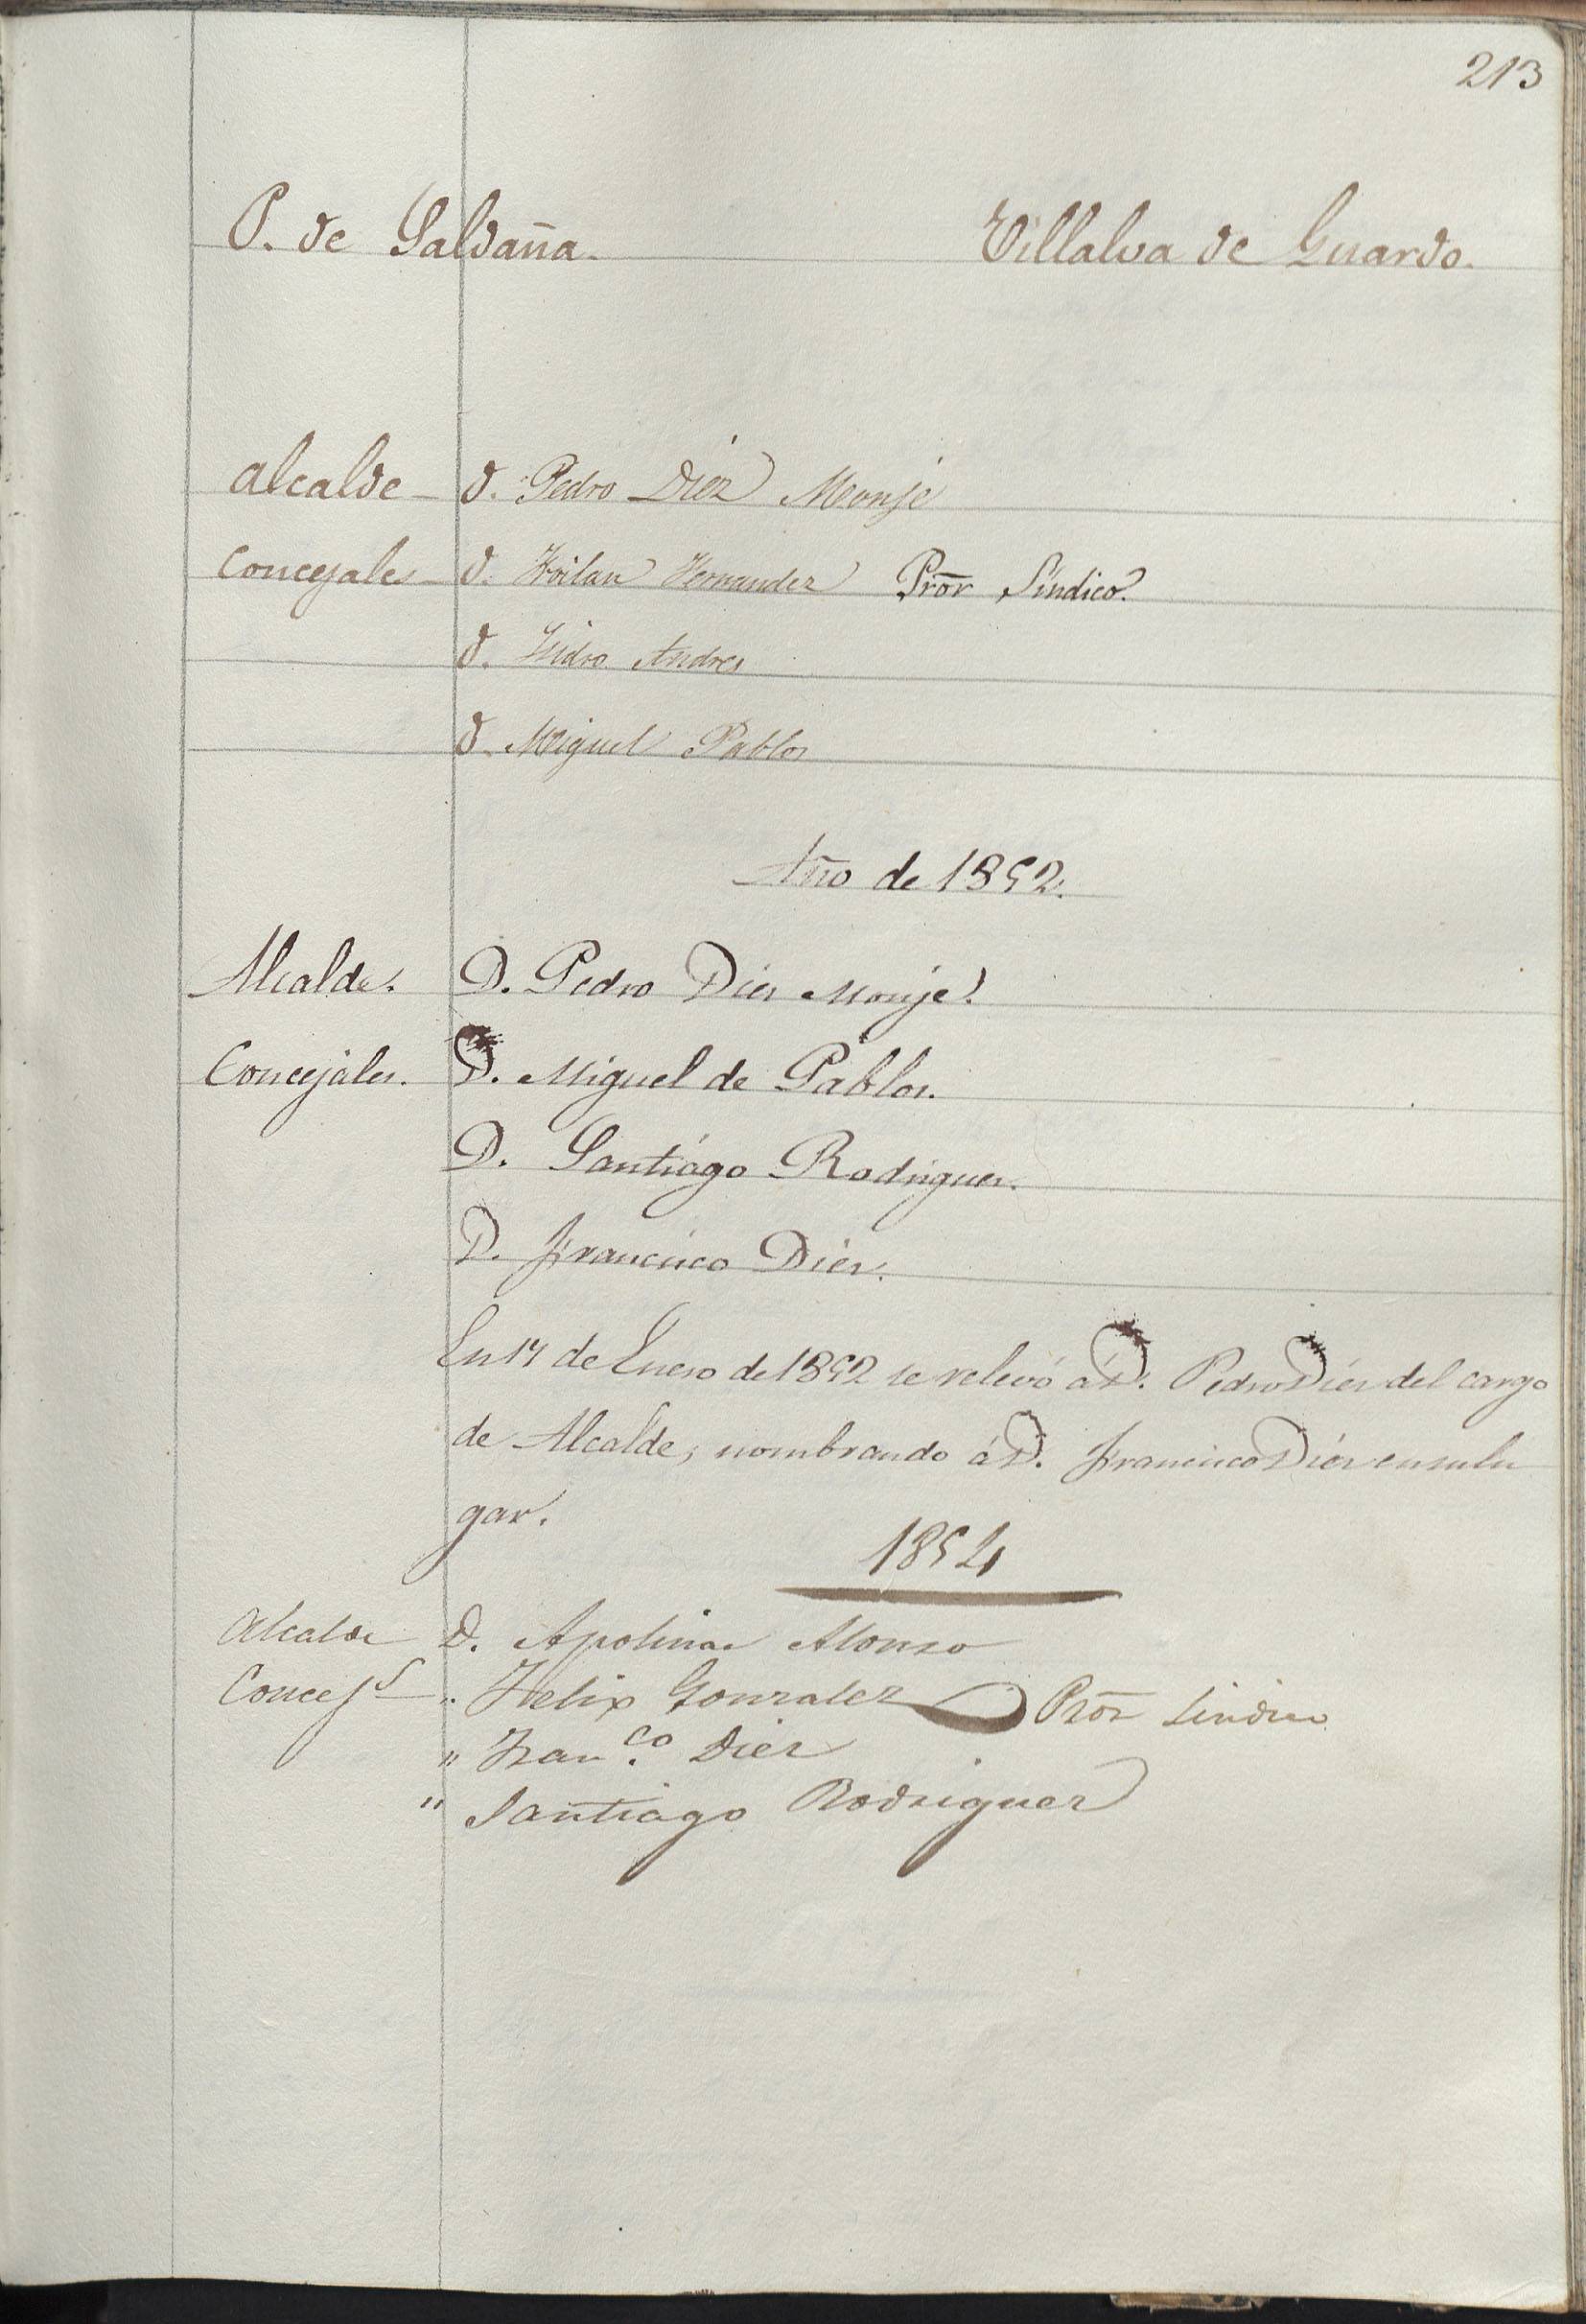 213
P. de Saldaña. Villalva de Guardo.
Alcalde D. Pedro Diez Monje
Concejales D. Froilan Hernandez Prõr Síndico.
D. Isidro Andres
D. Miguel Pablos
Año de 1852.
Alcalde. D. Pedro Diez Monje.
Concejales. D. Miguel de Pablos.
D. Santiágo Rodriguez.
D. Francisco Diez.
En 17 de Enero de 1852 se relevó á D. Pedro Diez del cargo
de Alcalde, nombrando á D. Francisco Diez en su lu
gar.
1854
Alcalde D. Apolinar Alonso
Concejs " Felix Gonzalez Prõr Sindico
" Franco. Diez
" Santiago Rodriguez